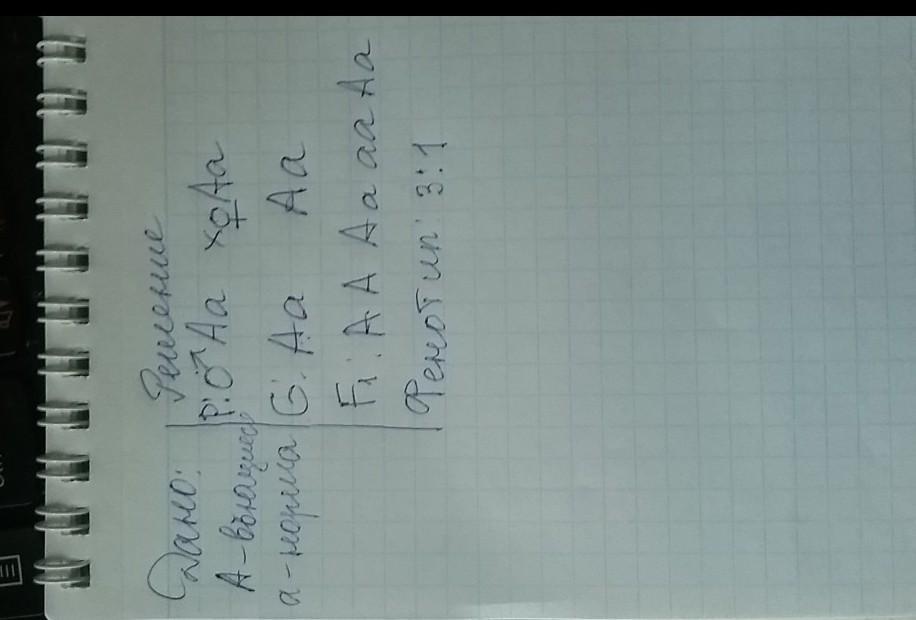 Дано:
А-вьющиеся
а-норма
Решение
P: ♂ Aa x ♀ Aa
G: Aa Aa
F1: AA Aa aa Aa
Фенотип: 3:1